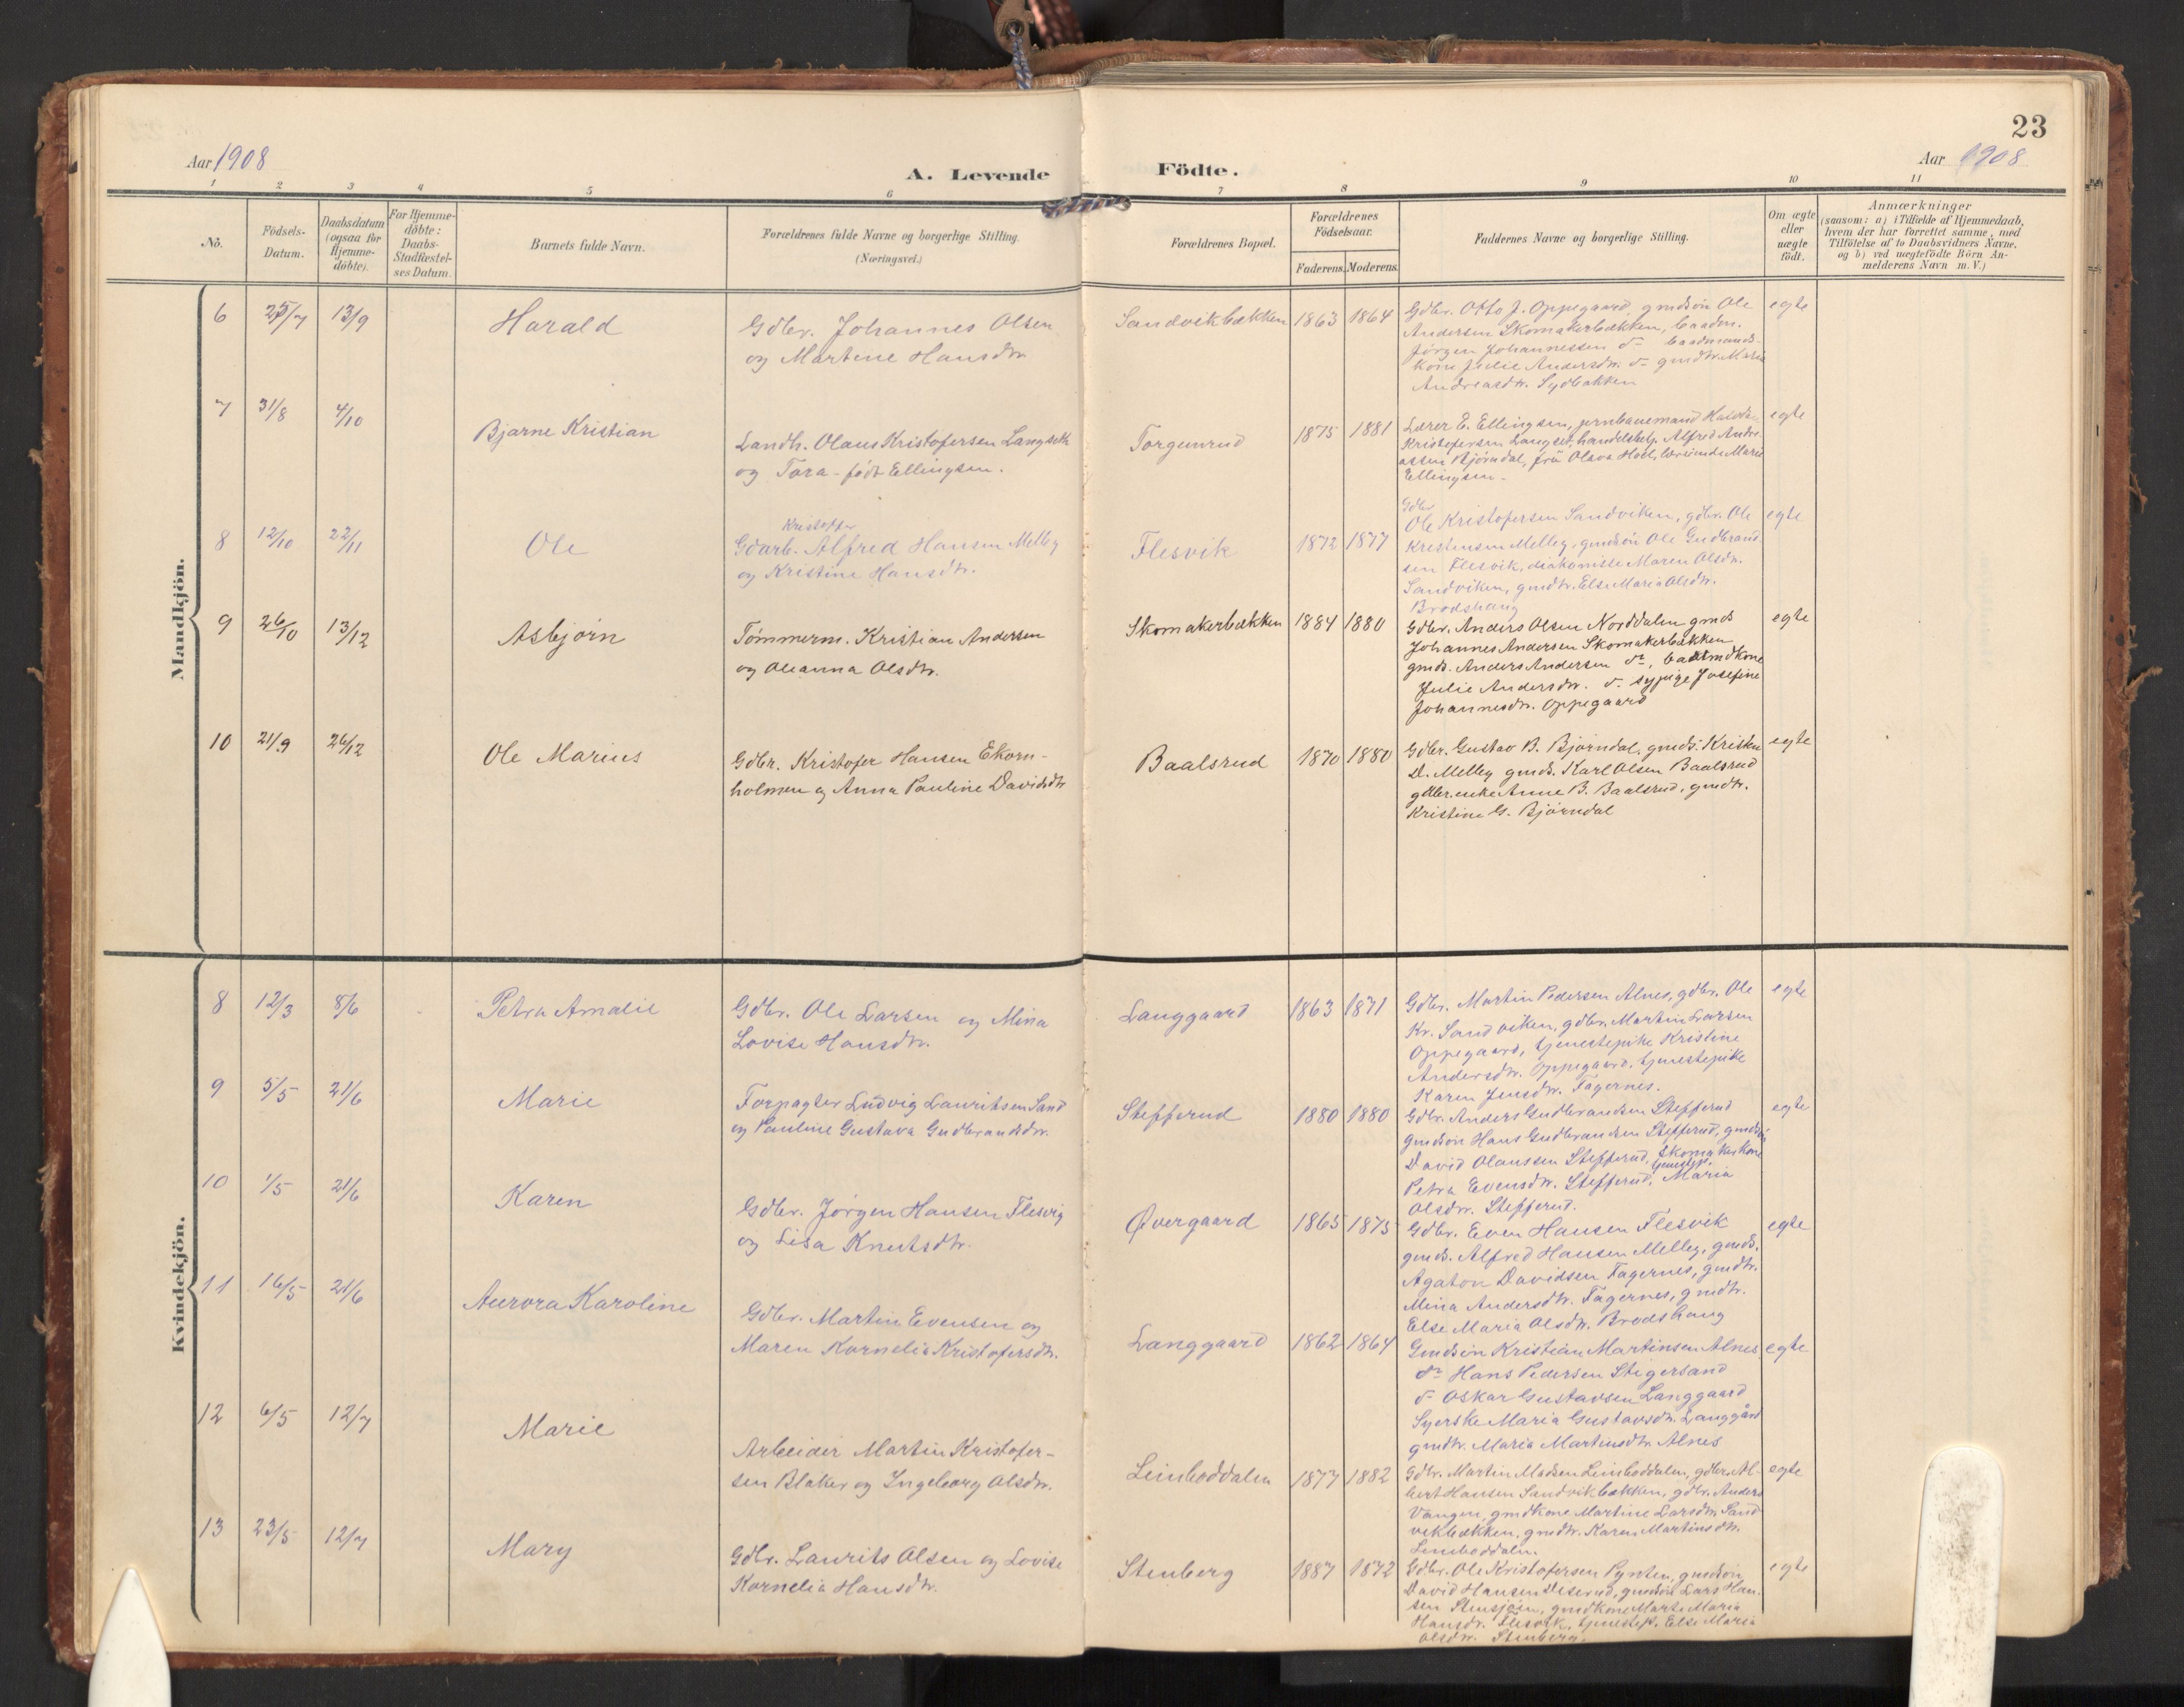 23
Aar 1908
A. Levende Födte.
Aar 1908
1 2 3 4 5 6 7 8 9 10 11
No.
Födsels-
Datum.
Daabsdatum
(ogsaa for
Hjemme-
döbte).
For Hjemme-
döbte:
Daabs-
Stadfæstel-
ses Datum.
Barnets fulde Navn.
Forældrenes fulde Navne og borgerlige Stilling.
(Næringsvei.)
Forældrenes Bopæl.
Forældrenes
Födselsaar.
Faderens. Moderens.
Faddernes Navne og borgerlige Stilling.
Om ægte
eller
uægte
födt.
Anmærkninger
(saasom: a) i Tilfælde af Hjemmedaab,
hvem der har forrettet samme, med
Tilföielse af to Daabsvidners Navne,
og b) ved uægtefödte Börn An-
melderens Navn m. V.)
Mandkjön.
6 25/7 13/9 Harald
Gdbr. Johannes Olsen
og Martine Hansdtr.
Sandvikbækken 1863 1864
Gdbr. Otto J. Oppegaard, gmdsøn Ole
Andersen Skomakerbækken, baadm.
Jørgen Johannessen do baadmands-
kone Julie Andersdtr. do gmdtr. Maria
Andreasdtr. Sydbakken
egte
7 31/8 4/10 Bjarne Kristian
Landh. Olaus Kristofersen Langseth
og Tora - født Ellingsen.
Torgunrud 1875 1881
Lærer E. Ellingsen, jernbanemand
Kristofersen Langset, handelsbetj. Alfred Andre
assen Bjørndal, fru Olava Hoel, lærerinde Marie
Ellingsen.
egte
8 12/10 22/11 Ole
Kristoffer
Gdarb. Alfred Hansen Melby
og Kristine Hansdtr.
Flesvik 1872 1877
Gdbr
Ole Kristofersen Sandviken, gdbr. Ole
Kristensen Melby, gmdsøn Ole Gudbrand
sen Flesvik, diakonisse Maren Olsdtr.
Sandviken, gmdtr. Else Maria Olsdtr.
Brodshaug
egte
9 26/10 13/12 Asbjørn
Tømmerm. Kristian Andersen
og Oleanna Olsdtr.
Skomakerbækken 1884 1880
Gdbr. Anders Olsen Norddalen gmds
Johannes Andersen Skomakerbækken
gmds. Anders Andersen do, baadmdkone
Julie Andersdtr. do sypige Josefine
Johannesdtr. Oppegaard
egte
10 21/9 26/12 Ole Marius
Gdbr. Kristofer Hansen Ekorn-
holmen og Anna Pauline Davidsdtr
Baalsrud 1870 1880
Gdbr. Gustav B. Bjørndal, gmds. Kristen
D. Melby gmds. Karl Olsen Baalsrud
gdbr.enke Anne B. Baalsrud, gmdtr.
Kristine G. Bjørndal
egte
Kvindekjön.
8 12/3 8/6 Petra Amalie
Gdbr. Ole Larsen og Mina
Lovise Hansdtr.
Langgaard 1863 1871
Gdbr. Martin Pedersen Alnes, gdbr. Ole
Kr. Sandviken, gdbr. Martin Larsen
Oppegaard, tjenestepike Kristine
Andersdtr. Oppegaard, tjenestepike
Karen Jensdtr. Fagernes.
egte
9 5/5 21/6 Marie
Forpagter Ludvig Lauritsen Sand
og Pauline Gustava Gudbrandsdtr.
Stefferud 1880 1880
Gdbr. Anders Gudbrandsen Stefferud
gmdsøn Hans Gudbrandsen Stefferud, gmdsøn
David Olaussen Stefferud, Skomakerkone
Petra Evensdtr. Stefferud, tjenestp. Maria
Olsdtr. Stefferud.
egte
10 1/5 21/6 Karen
Gdbr. Jørgen Hansen Flesvig
og Lisa Knutsdtr.
Øvergaard 1865 1875
Gdbr. Even Hansen Flesvik
gmds. Alfred Hansen Melby, gmds.
Agaton Davidsen Fagernes, gmdtr.
Mina Andersdtr. Fagernes, gmdtr.
Else Maria Olsdtr. Brodshaug
egte
11 16/5 21/6 Aurora Karoline
Gdbr. Martin Evensen og
Maren Kornelia Kristofersdtr.
Langgaard 1862 1864
Gmdsøn Kristian Martinsen Alnes
do Hans Pedersen Stigersand
do Oskar Gustavsen Langgaard
Syerske Maria Gustavsdtr. Langgård
gmdtr. Maria Martinsdtr. Alnes
egte
12 6/5 12/7 Marie
Arbeider Martin Kristofer-
sen Blaker og Ingeborg Olsdtr.
Leinboddalen 1877 1882
Gdbr. Martin Madsen Leinboddalen, gdbr. Al-
bert Hansen Sandvikbækken, gdbr. Anders
Vangen, gmdkone Martine Larsdtr. Sand
vikbækken, gmdtr. Karen Martinsdtr.
Leinboddalen.
egte
13 23/5 12/7 Mary
Gdbr. Laurits Olsen og Lovise
Kornelia Hansdtr.
Stenberg 1887 1872
Gdbr. Ole Kristofersen Pynten, gmdsøn
David Hansen Diserud, gmdsøn Lars Han-
sen Stensjøen, gmdkone Marte Maria
Hansdtr. Flesvik, tjenestep. Else Maria
Olsdtr. Stenberg.
egte